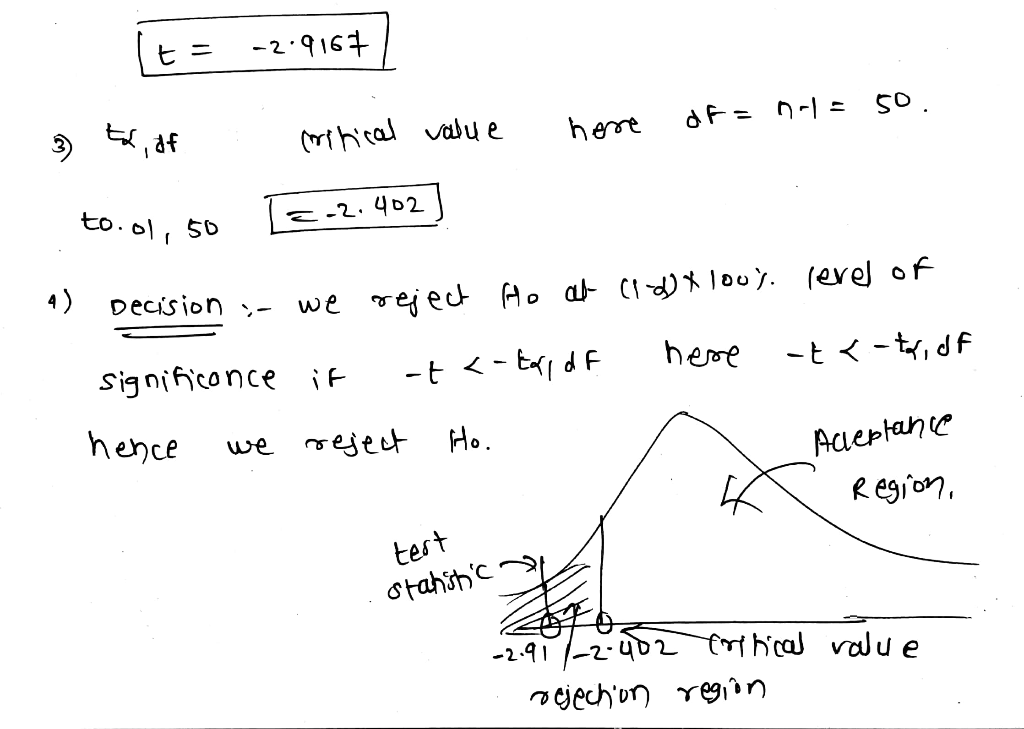 t = -2.9167
3) tα,df critical value here df = n-1 = 50.
t0.01, 50 = -2.402
4) Decision :- we reject H0 at (1-α)*100%. level of
significance if -t < -tα, df here -t < -tα, df
hence we reject H0.
Acceptance
Region.
test
statistic
-2.91 -2.402 critical value
rejection region